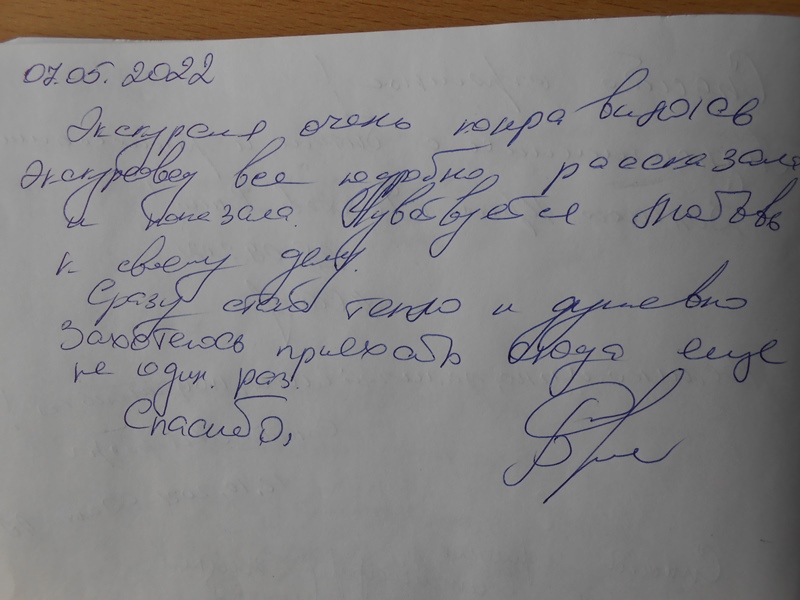 07.05.2022
Экскурсия очень понравилась
Экскурсовод все подробно рассказала
и показала. Чувствуется любовь
к своему делу.
Сразу стало тепло и душевно
Захотелось приехать сюда еще
не один раз.
Спасибо,